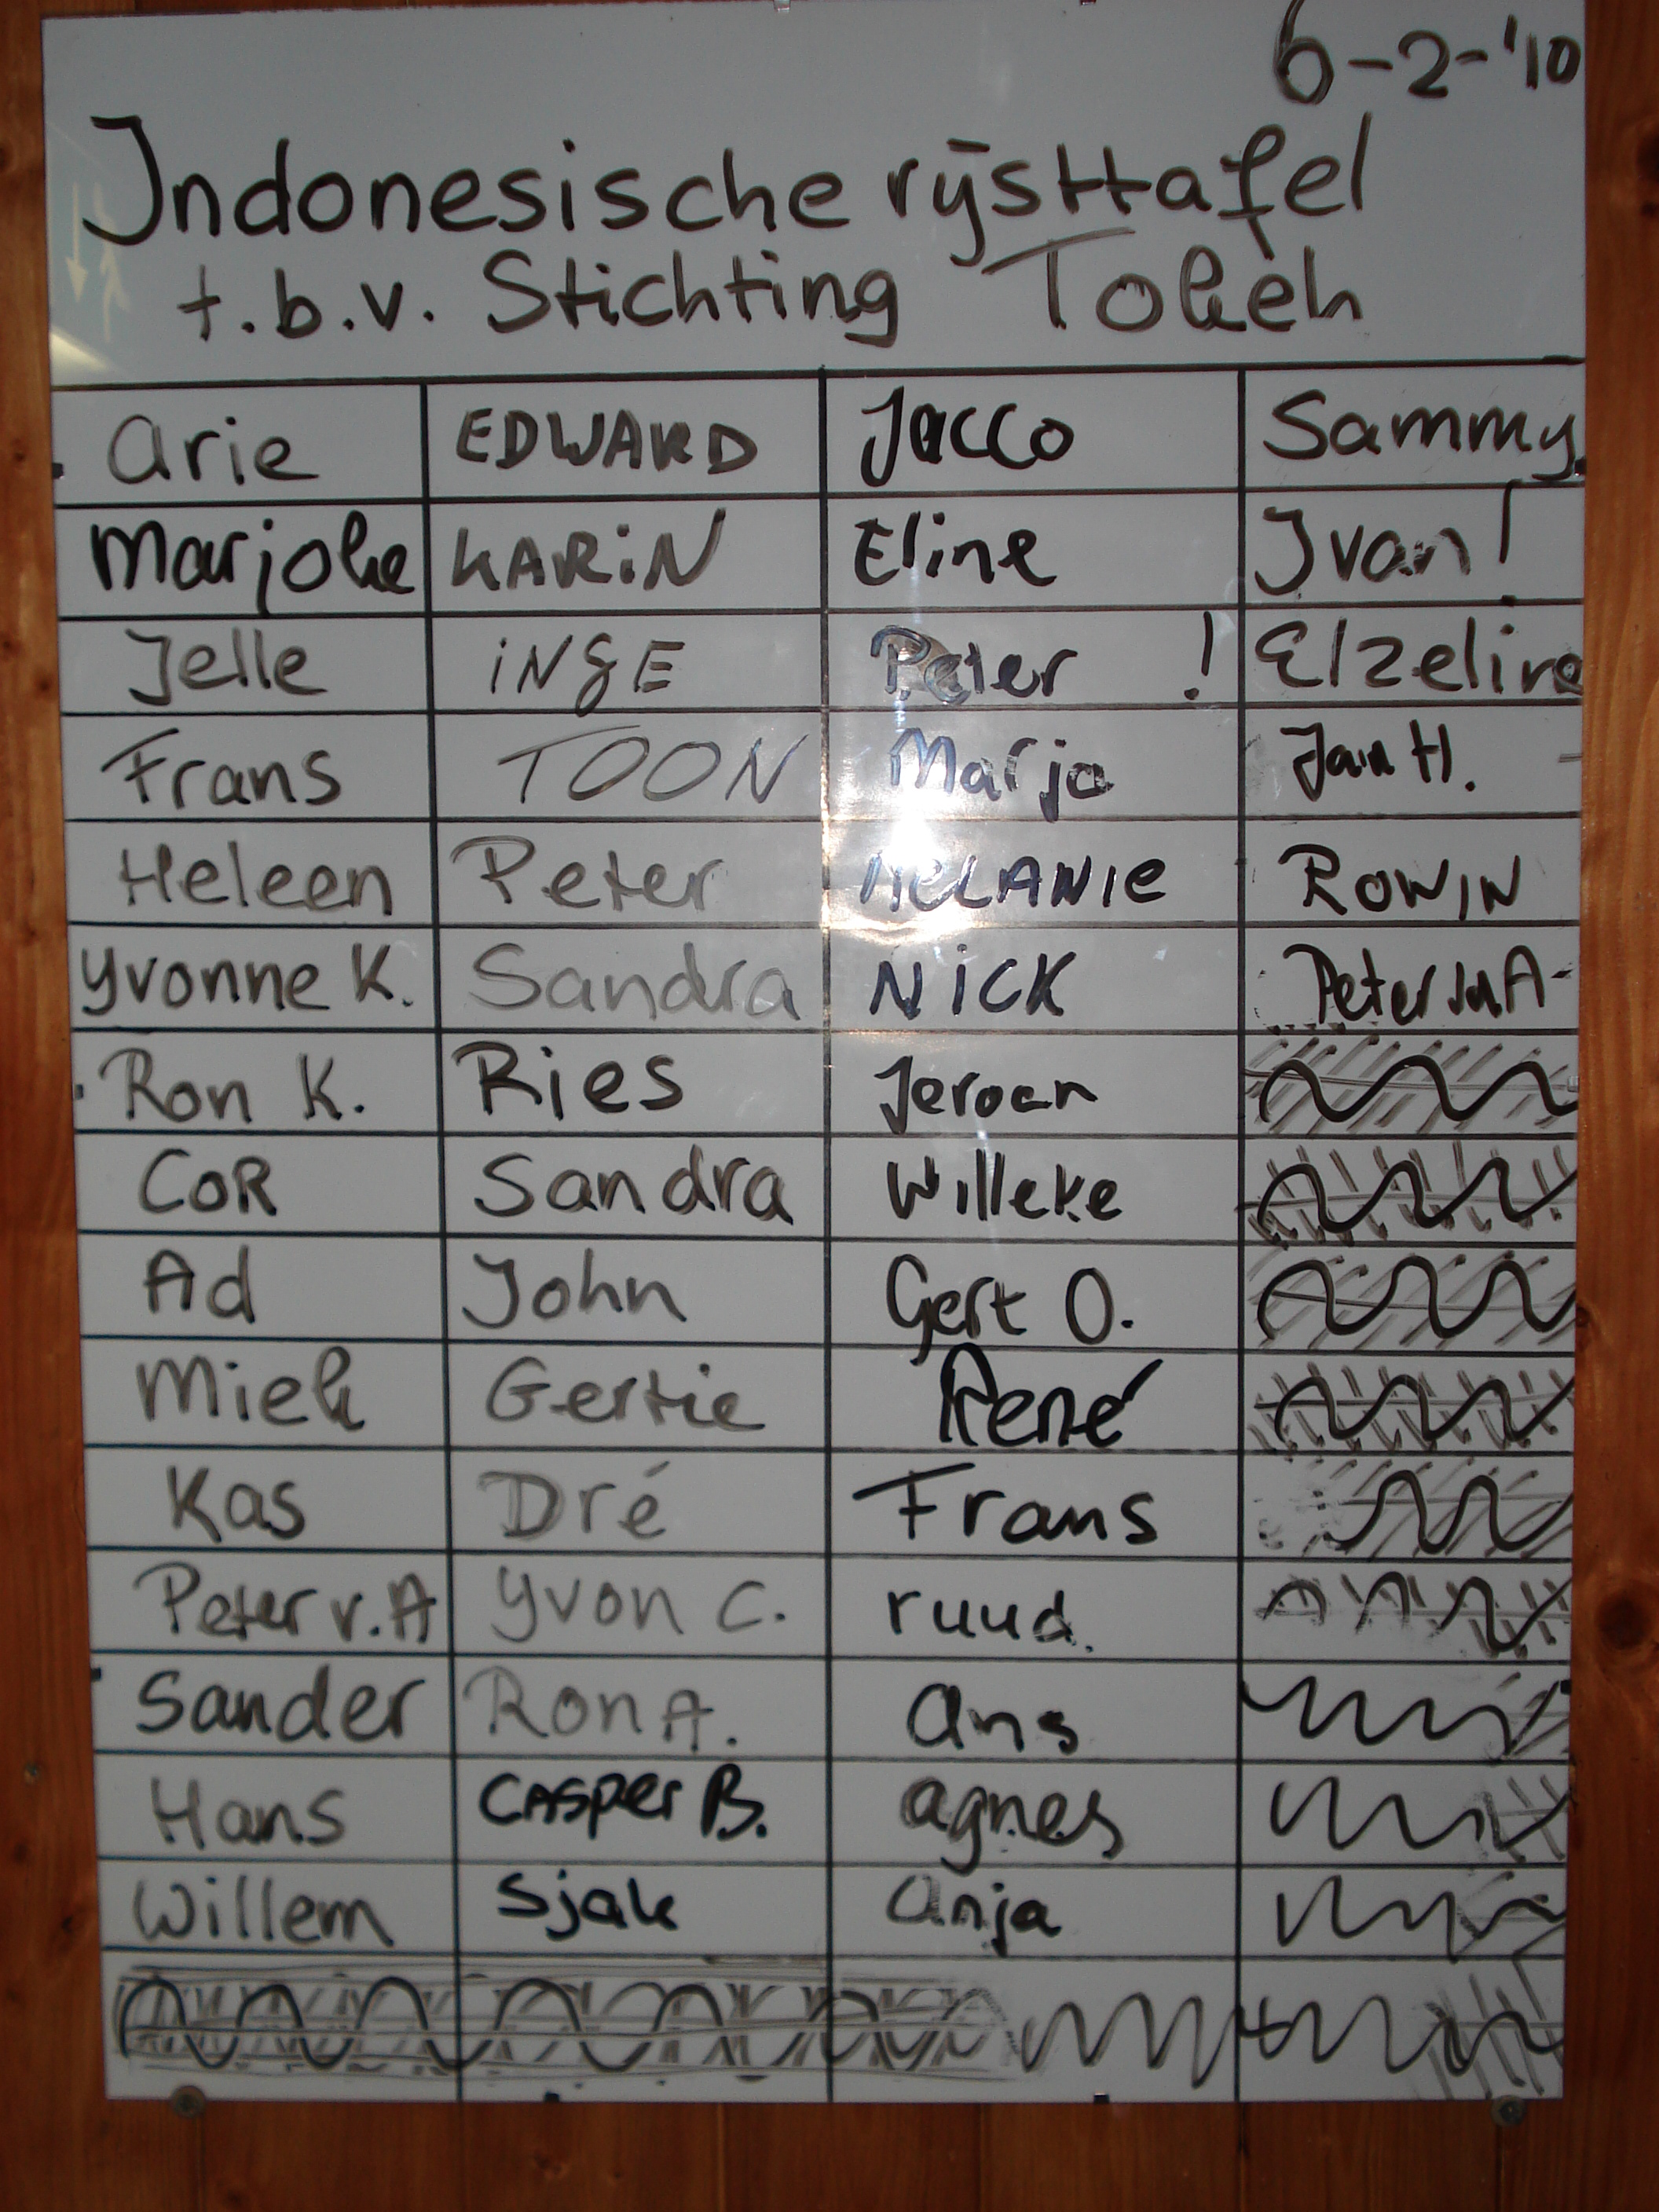 6-2-'10
Indonesische rijsttafel
t.b.v. Stichting Tokeh
Arie EDWARD Jacco Sammy
Marjoke KARiN Eline Ivan!
Jelle iNGE Peter ! Elzeline
Frans TOON Marja Jan H.
Heleen Peter MELANIE ROWIN
Yvonne K. Sandra NiCK Peter A
Ron K. Ries Jeroen
COR Sandra Willeke
Ad John Gert O.
Miek Gertie René
Kas Dré Frans
Peter v. A Yvon C. ruud.
Sander Ron A. Ans
Hans CASPer B. agnes
Willem Sjak Anja